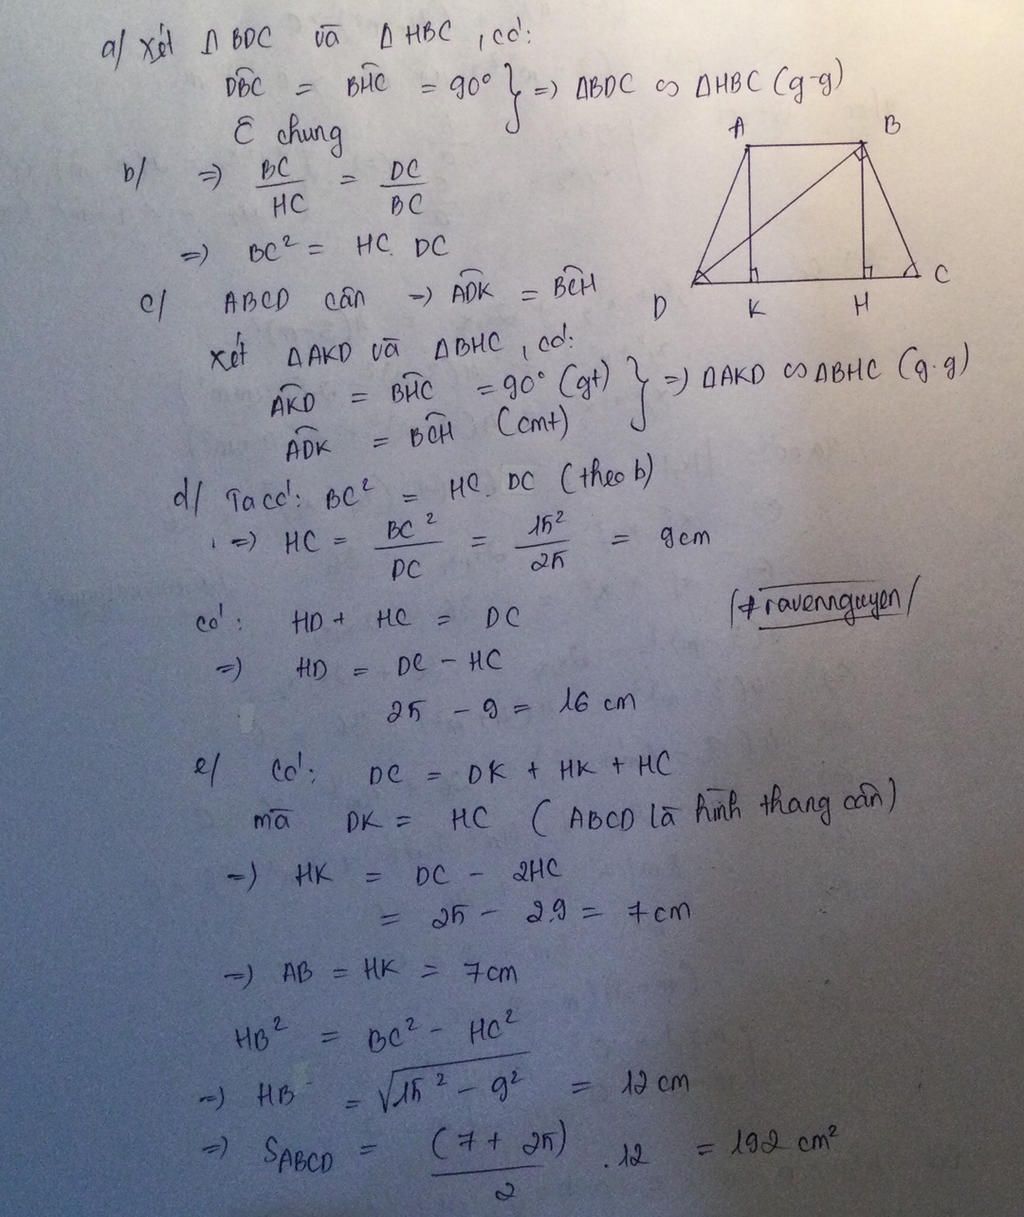 a/ Xét Δ BDC và Δ HBC , có:
DBC = BHC = 90° } => ΔBDC ∽ ΔHBC (g-g)
C chung
A B
D K H C
b/ => BC/HC = DC/BC
=> BC² = HC. DC
c/ ABCD cân => ADK = BCH
Xét ΔAKD và ΔBHC , có:
AKD = BHC = 90° (gt) } => ΔAKD ∽ ΔBHC (g.g)
ADK = BCH (cmt)
d/ Ta có: BC² = HC. DC (theo b)
=> HC = BC²/DC = 15²/25 = 9cm
/#ravennguyen/
có: HD + HC = DC
=> HD = DC - HC
25 - 9 = 16 cm
e/ Có: DC = DK + HK + HC
mà DK = HC (ABCD là hình thang cân)
=> HK = DC - 2HC
= 25 - 2.9 = 7cm
=> AB = HK = 7cm
HB² = BC² - HC²
=> HB = √15² - 9² = 12 cm
=> SABCD = (7 + 25)/2 . 12 = 192 cm²